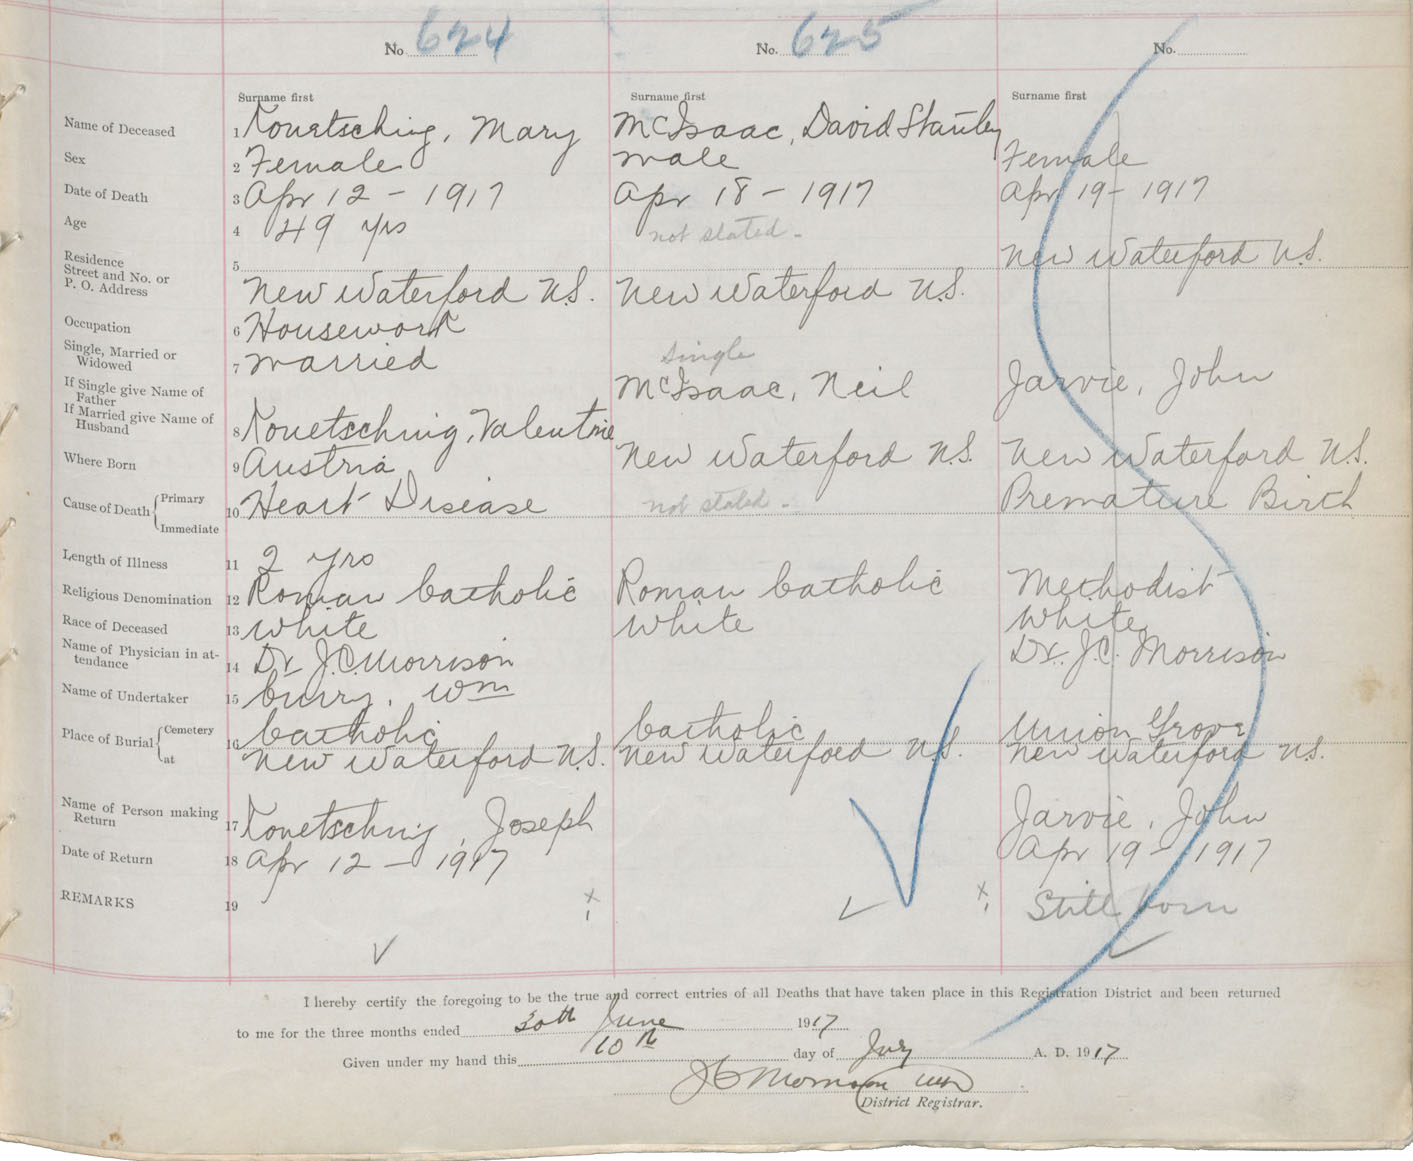 No 624 No. 625 No.
Surname first Surname first Surname first
Name of Deceased 1 Kouetsching, Mary McIsaac, David Stanley
Sex 2 Female male Female
Date of Death 3 Apr 12 - 1917 Apr 18 - 1917 Apr 19 - 1917
Age 4 49 yrs not stated -
Residence
Street and No. or
P. O. Address 5 New Waterford N.S. New Waterford N.S. New Waterford N.S.
Occupation 6 Housework
Single, Married or
Widowed 7 married single
If Single give Name of
Father McIsaac, Neil Jarvie, John
If Married give Name of
Husband 8 Kouetsching, Valentine
Where Born 9 Austria New Waterford N.S. New Waterford N.S.
Cause of Death Primary 10 Heart Disease not stated - Premature Birth
Immediate
Length of Illness 11 2 yrs
Religious Denomination 12 Roman Catholic Roman Catholic Methodist
Race of Deceased 13 White White White
Name of Physician in at-
tendance 14 Dr J.C. Morrison Dr. J.C. Morrison
Name of Undertaker 15 Curry, Wm
Place of Burial Cemetery 16 Catholic Catholic Union Grove
at New Waterford N.S. New Waterford N.S. New Waterford N.S.
Name of Person making
Return 17 Kouetsching, Joseph Jarvie, John
Date of Return 18 Apr 12 - 1917 Apr 19 - 1917
REMARKS 19 Still born
I hereby certify the foregoing to be the true and correct entries of all Deaths that have taken place in this Registration District and been returned
to me for the three months ended 30th June 1917
Given under my hand this 10th day of July A. D. 1917
J C Morrison MD
District Registrar.